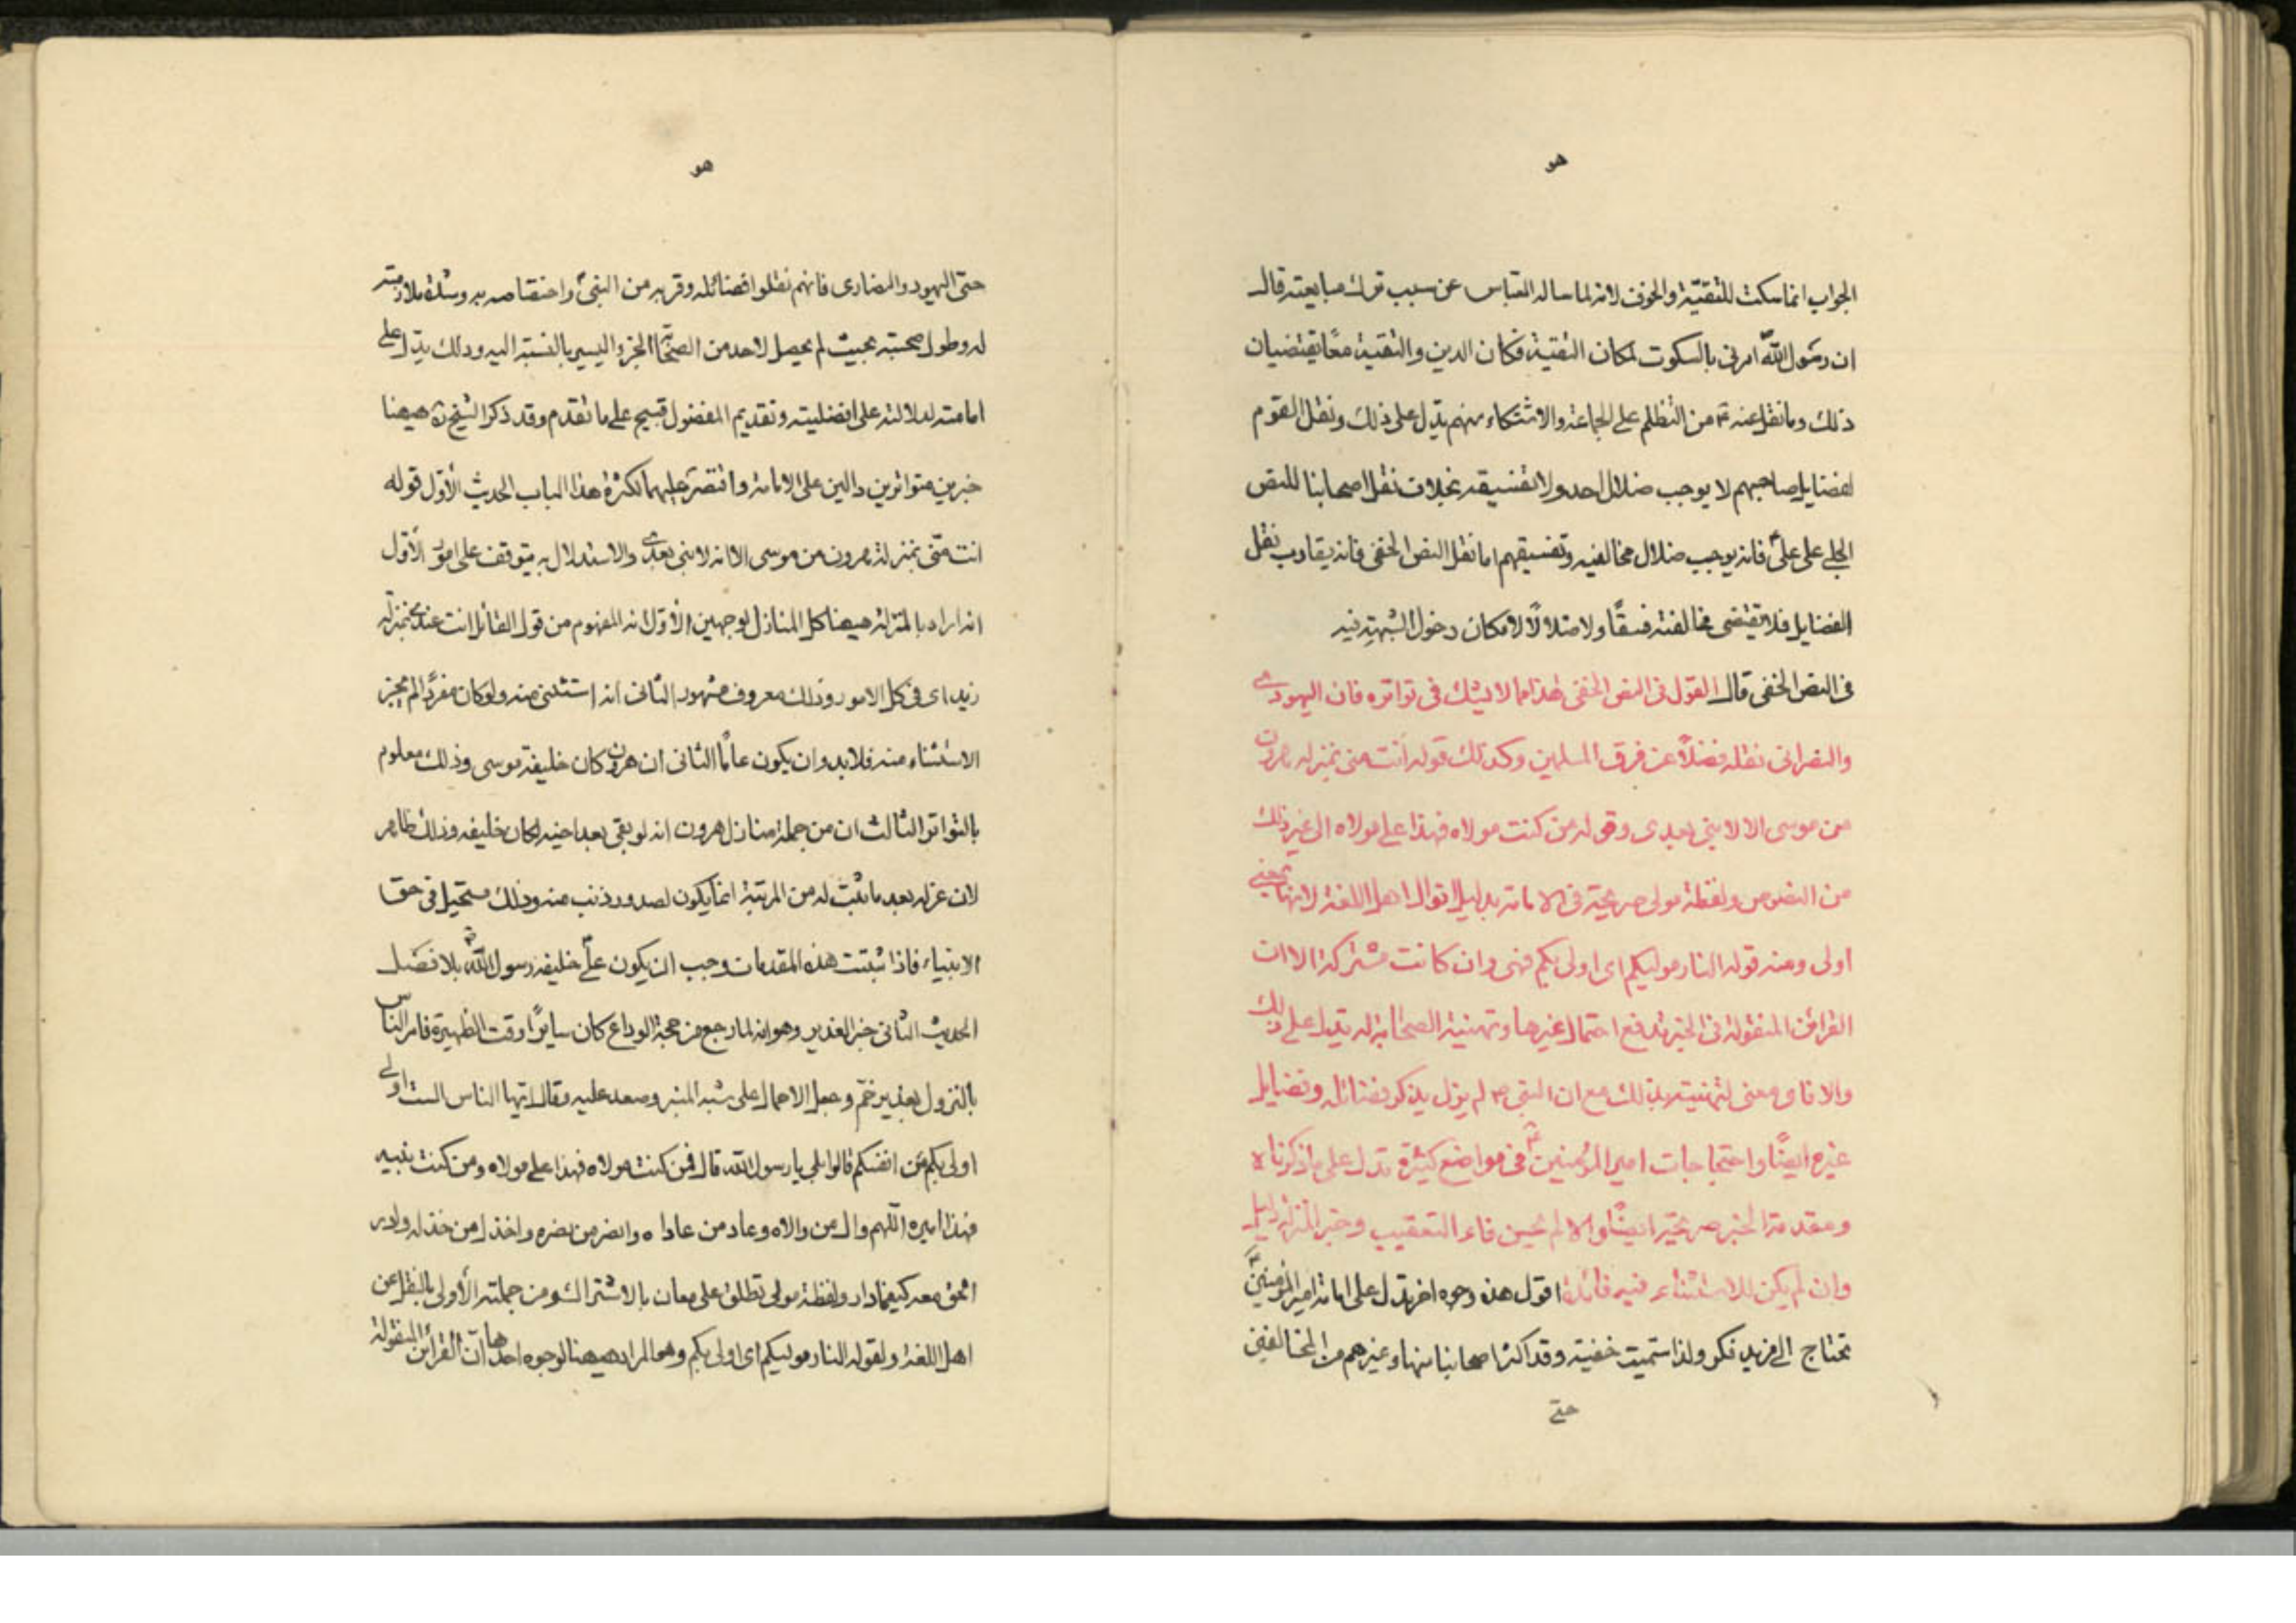 هو
الجواب انما سكت للتقيّة والخوف لانه لما ساله العباس عن سبب ترك مبايعته قال
ان رسول الله امرنى بالسكوت لمكان التقية فكان الدين والتقية معًا يقتضيان
ذلك وما نقل عنه ع من التظلم على الجماعة والاشتكاء منهم يدل على ذلك ونقل القوم
لفضايل صاحبهم لا يوجب ضلال احد ولا تفسيقه بخلاف نقل اصحابنا للنص
الجلى على علىّ فانه يوجب ضلال مخالفيه وتفسيقهم اما نقل النص الخفى فانه يقارب نقل
الفضايل فلا يقتضى مخالفته فسقًا ولا ضلالًا لامكان دخول الشبهة فيه
فى النص الخفى قال القول فى النص الخفى هذا مما لا يشك فى تواتره فان اليهودى
والنصرانى نقله فضلًا عن فرق المسلمين وكذلك قوله انت منى بمنزلة هرون
من موسى الا لا نبى بعدى وقوله من كنت مولاه فهذا على مولاه الى غير ذلك
من النصوص ولفظة مولى صريحة فى الامامة بدليل اقوال اهل اللغة لانها بمعنى
اولى ومنه قوله النار موليكم اى اولى بكم فهى وان كانت مشتركة الا ان
القرائن المنقولة فى الخبر تدفع احتمال غيرها وتهنية الصحابة له تدل على ذلك
والا فاى معنى لتهنيته بذلك مع ان النبى ص لم يزل يذكر فضائله وفضايل
غيره ايضًا واحتجاجات امير المؤمنين ع فى مواضع كثيرة تدل على ما ذكرناه
ومقدمة الخبر صريحة ايضًا والا لم يحسن فاء التعقيب وخبر المنزلة دليل
وان لم يكن للاستثناء فيه فائدة اقول هذه وجوه اخر تدل على امامة امير المؤمنين ع
تحتاج الى مزيد فكر ولذا سميت خفية وقد اكثر اصحابنا منها وغيرهم من المخالفين
حتى
هو
حتى اليهود والنصارى فانهم نقلوا فضائله وقربه من النبى واختصاصه به وشدة ملازمته
له وطول صحبته بحيث لم يحصل لاحد من الصحابة الجزء اليسير بالنسبة اليه وذلك يدل على
امامته لدلالته على افضليته وتقديم المفضول قبيح على ما تقدم وقد ذكر الشيخ ره هيهنا
خبرين متواترين دالين على الامامة واقتصر عليهما لكثرة هذا الباب الحديث الأول قوله
انت منى بمنزلة هرون من موسى الا انه لا نبى بعدى والاستدلال به يتوقف على امور الأول
انه اراد بالمنزلة هيهنا كل المنازل لوجهين الأول انه المفهوم من قول القائل انت عندى بمنزلة
زيد اى فى كل الامور وذلك معروف مشهور الثانى انه استثنى منه ولو كان مفردًا لم يجز
الاستثناء منه فلابد وان يكون عامًا الثانى ان هرون كان خليفة موسى وذلك معلوم
بالتواتر الثالث ان من جملة منازل هرون انه لو بقى بعد اخيه لكان خليفة وذلك ظاهر
لان عزله بعد ما ثبت له من المرتبة انما يكون لصدور ذنب منه وذلك مستحيل فى حق
الانبياء فاذا ثبتت هذه المقدمات وجب ان يكون علىّ خليفة رسول الله بلا فصل
الحديث الثانى خبر الغدير وهو انه لما رجع من حجة الوداع كان سايرًا وقت الظهيرة فامر الناس
بالنزول بغدير خم وجعل الاحمال على شبه المنبر وصعد عليه وقال ايها الناس الست اولى
اولى بكم من انفسكم قالوا بلى يا رسول الله قال فمن كنت مولاه فهذا على مولاه ومن كنت نبيه
فهذا اميره اللهم وال من والاه وعاد من عاداه وانصر من نصره واخذل من خذله وادر
الحق معه كيفما دار ولفظة مولى تطلق على معان بالاشتراك ومن جملته الأولى بالنقل عن
اهل اللغة ولقوله النار موليكم اى اولى بكم وهو المراد هيهنا لوجوه احدها ان القرائن المنقولة